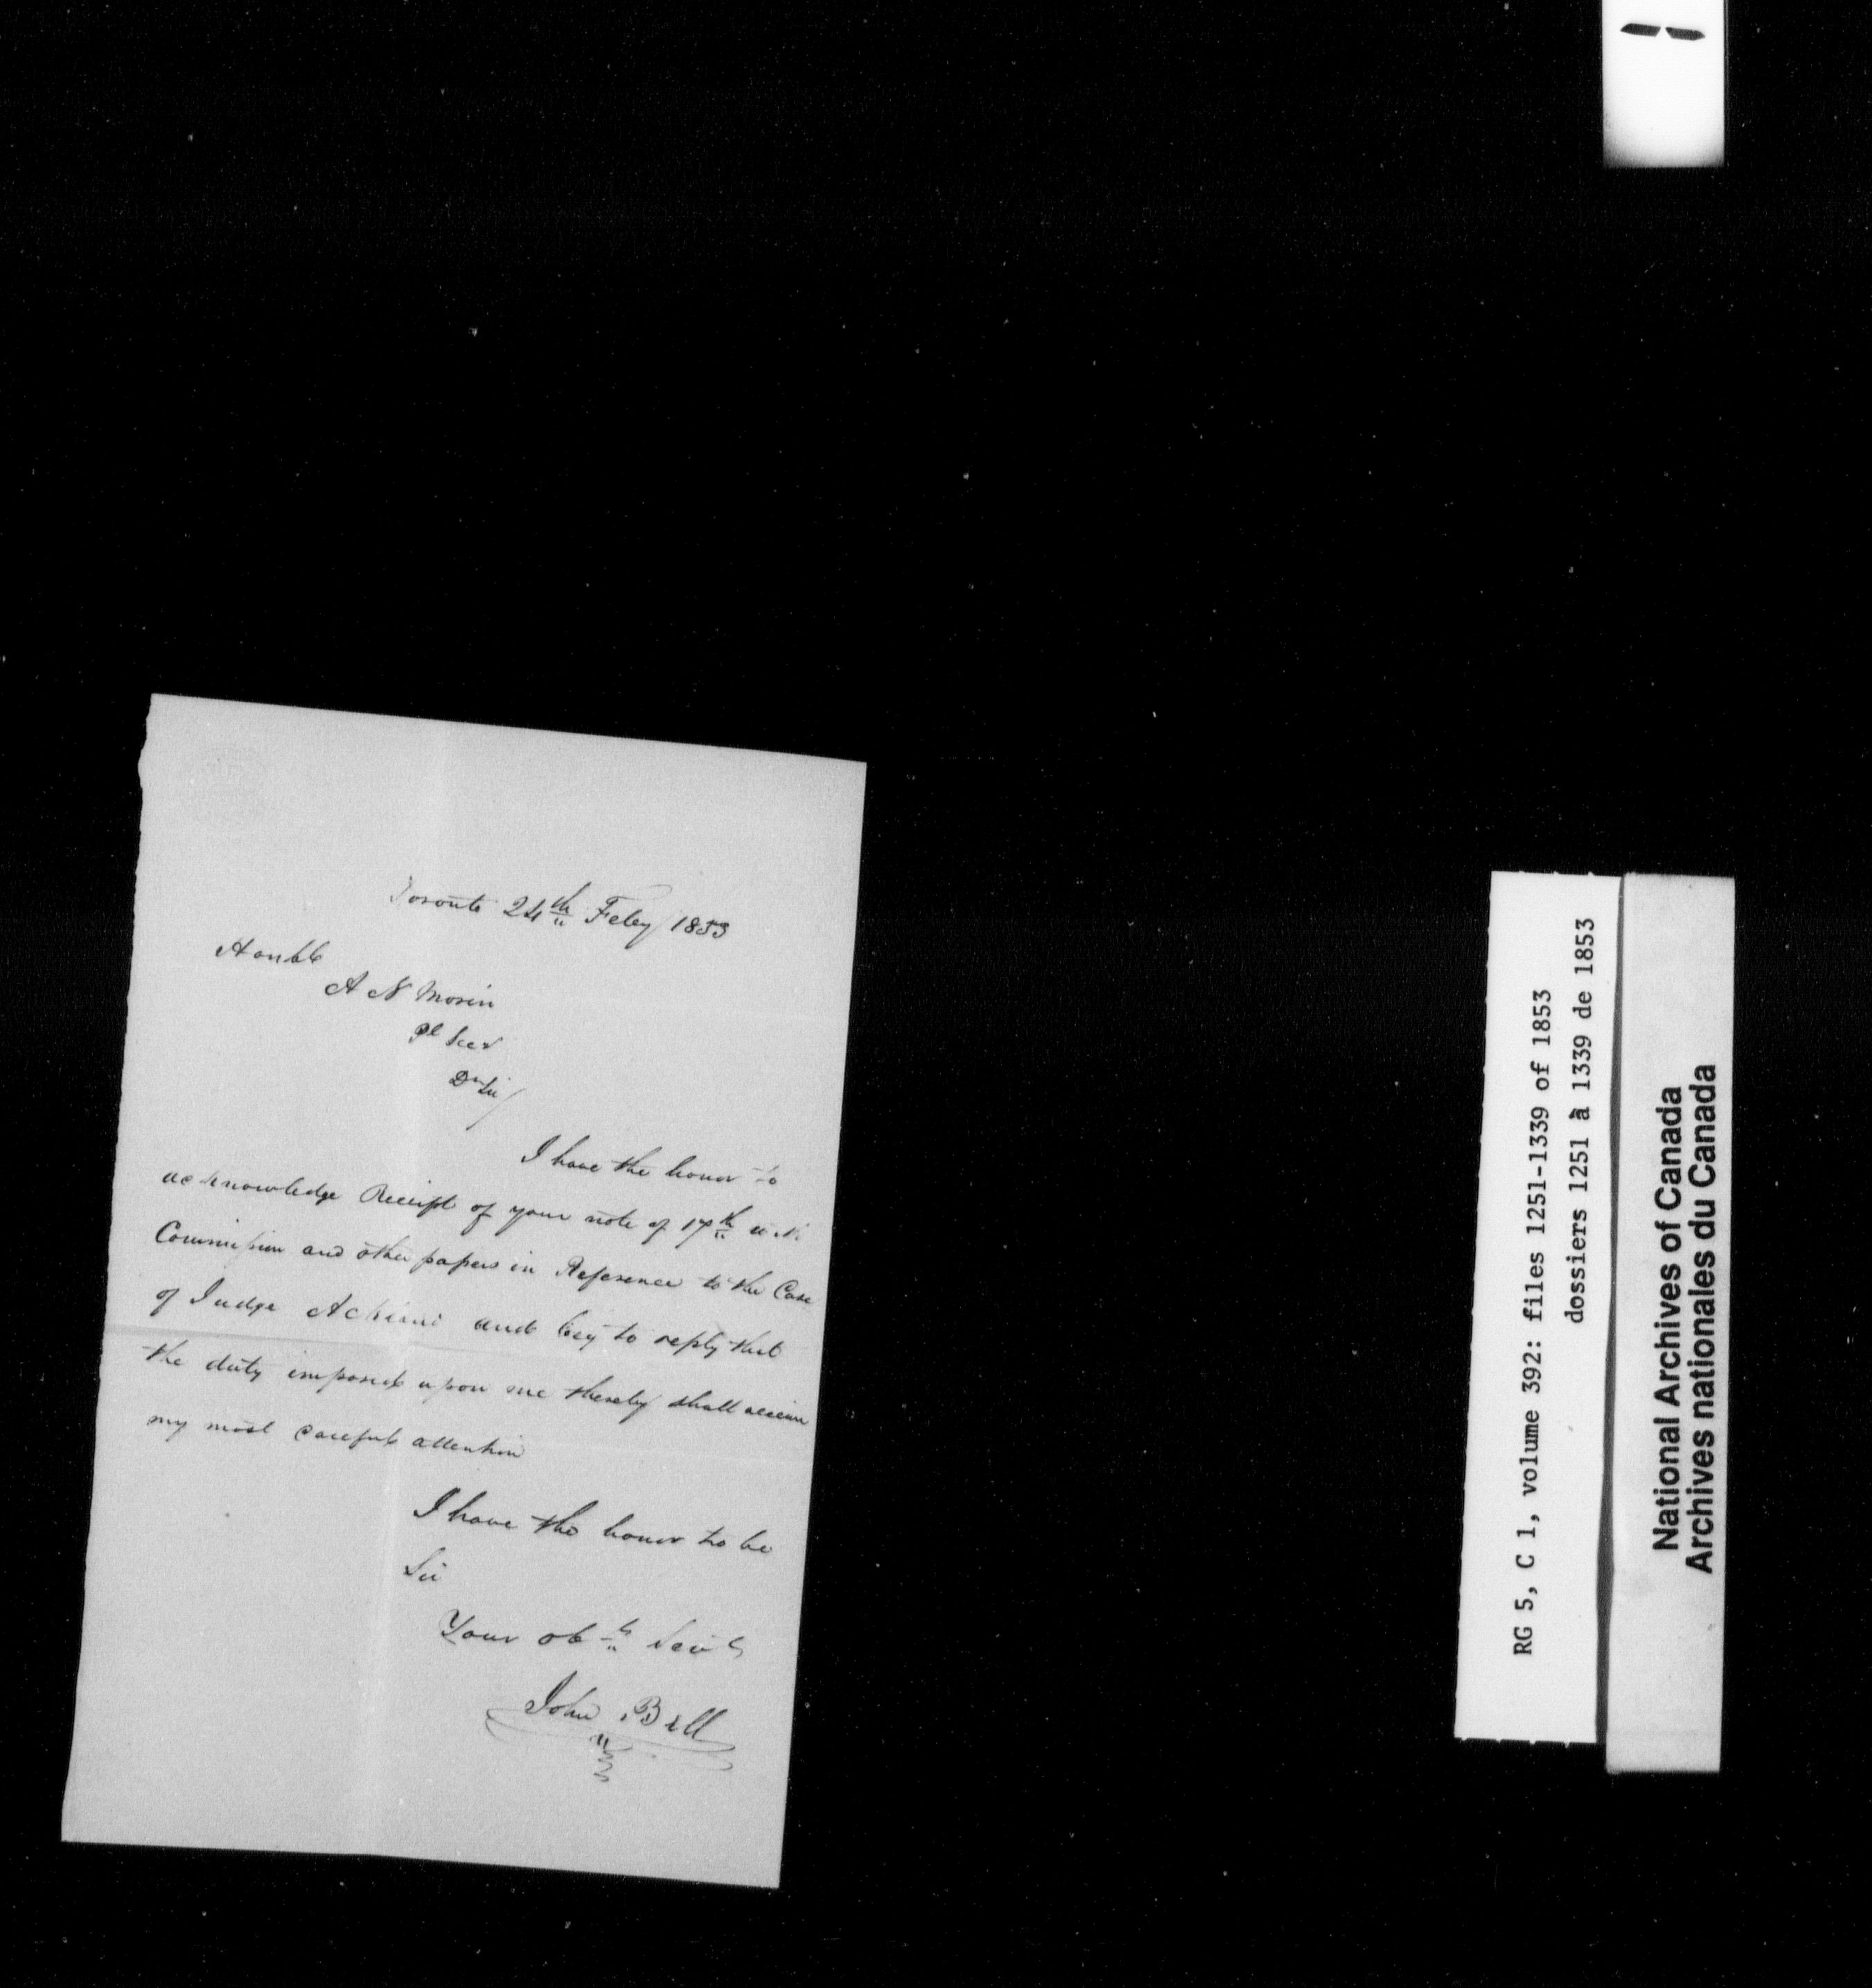 Toronto 24th Feby 1853
Honble
A N Morin
Pl Secy
Dr Sir/
I have the honor to
acknowledge Receipt of your note of 17th with
Commission and other papers in Reference to the Case
of Judge and beg to reply that
the duty imposed upon me thereby shall receive
my most careful attention
I have the honor to be
Sir
Your obt Servt
John Bell
RG 5, C 1, volume 392: files 1251-1339 of 1853
dossiers 1251 à 1339 de 1853
National Archives of Canada
Archives nationales du Canada